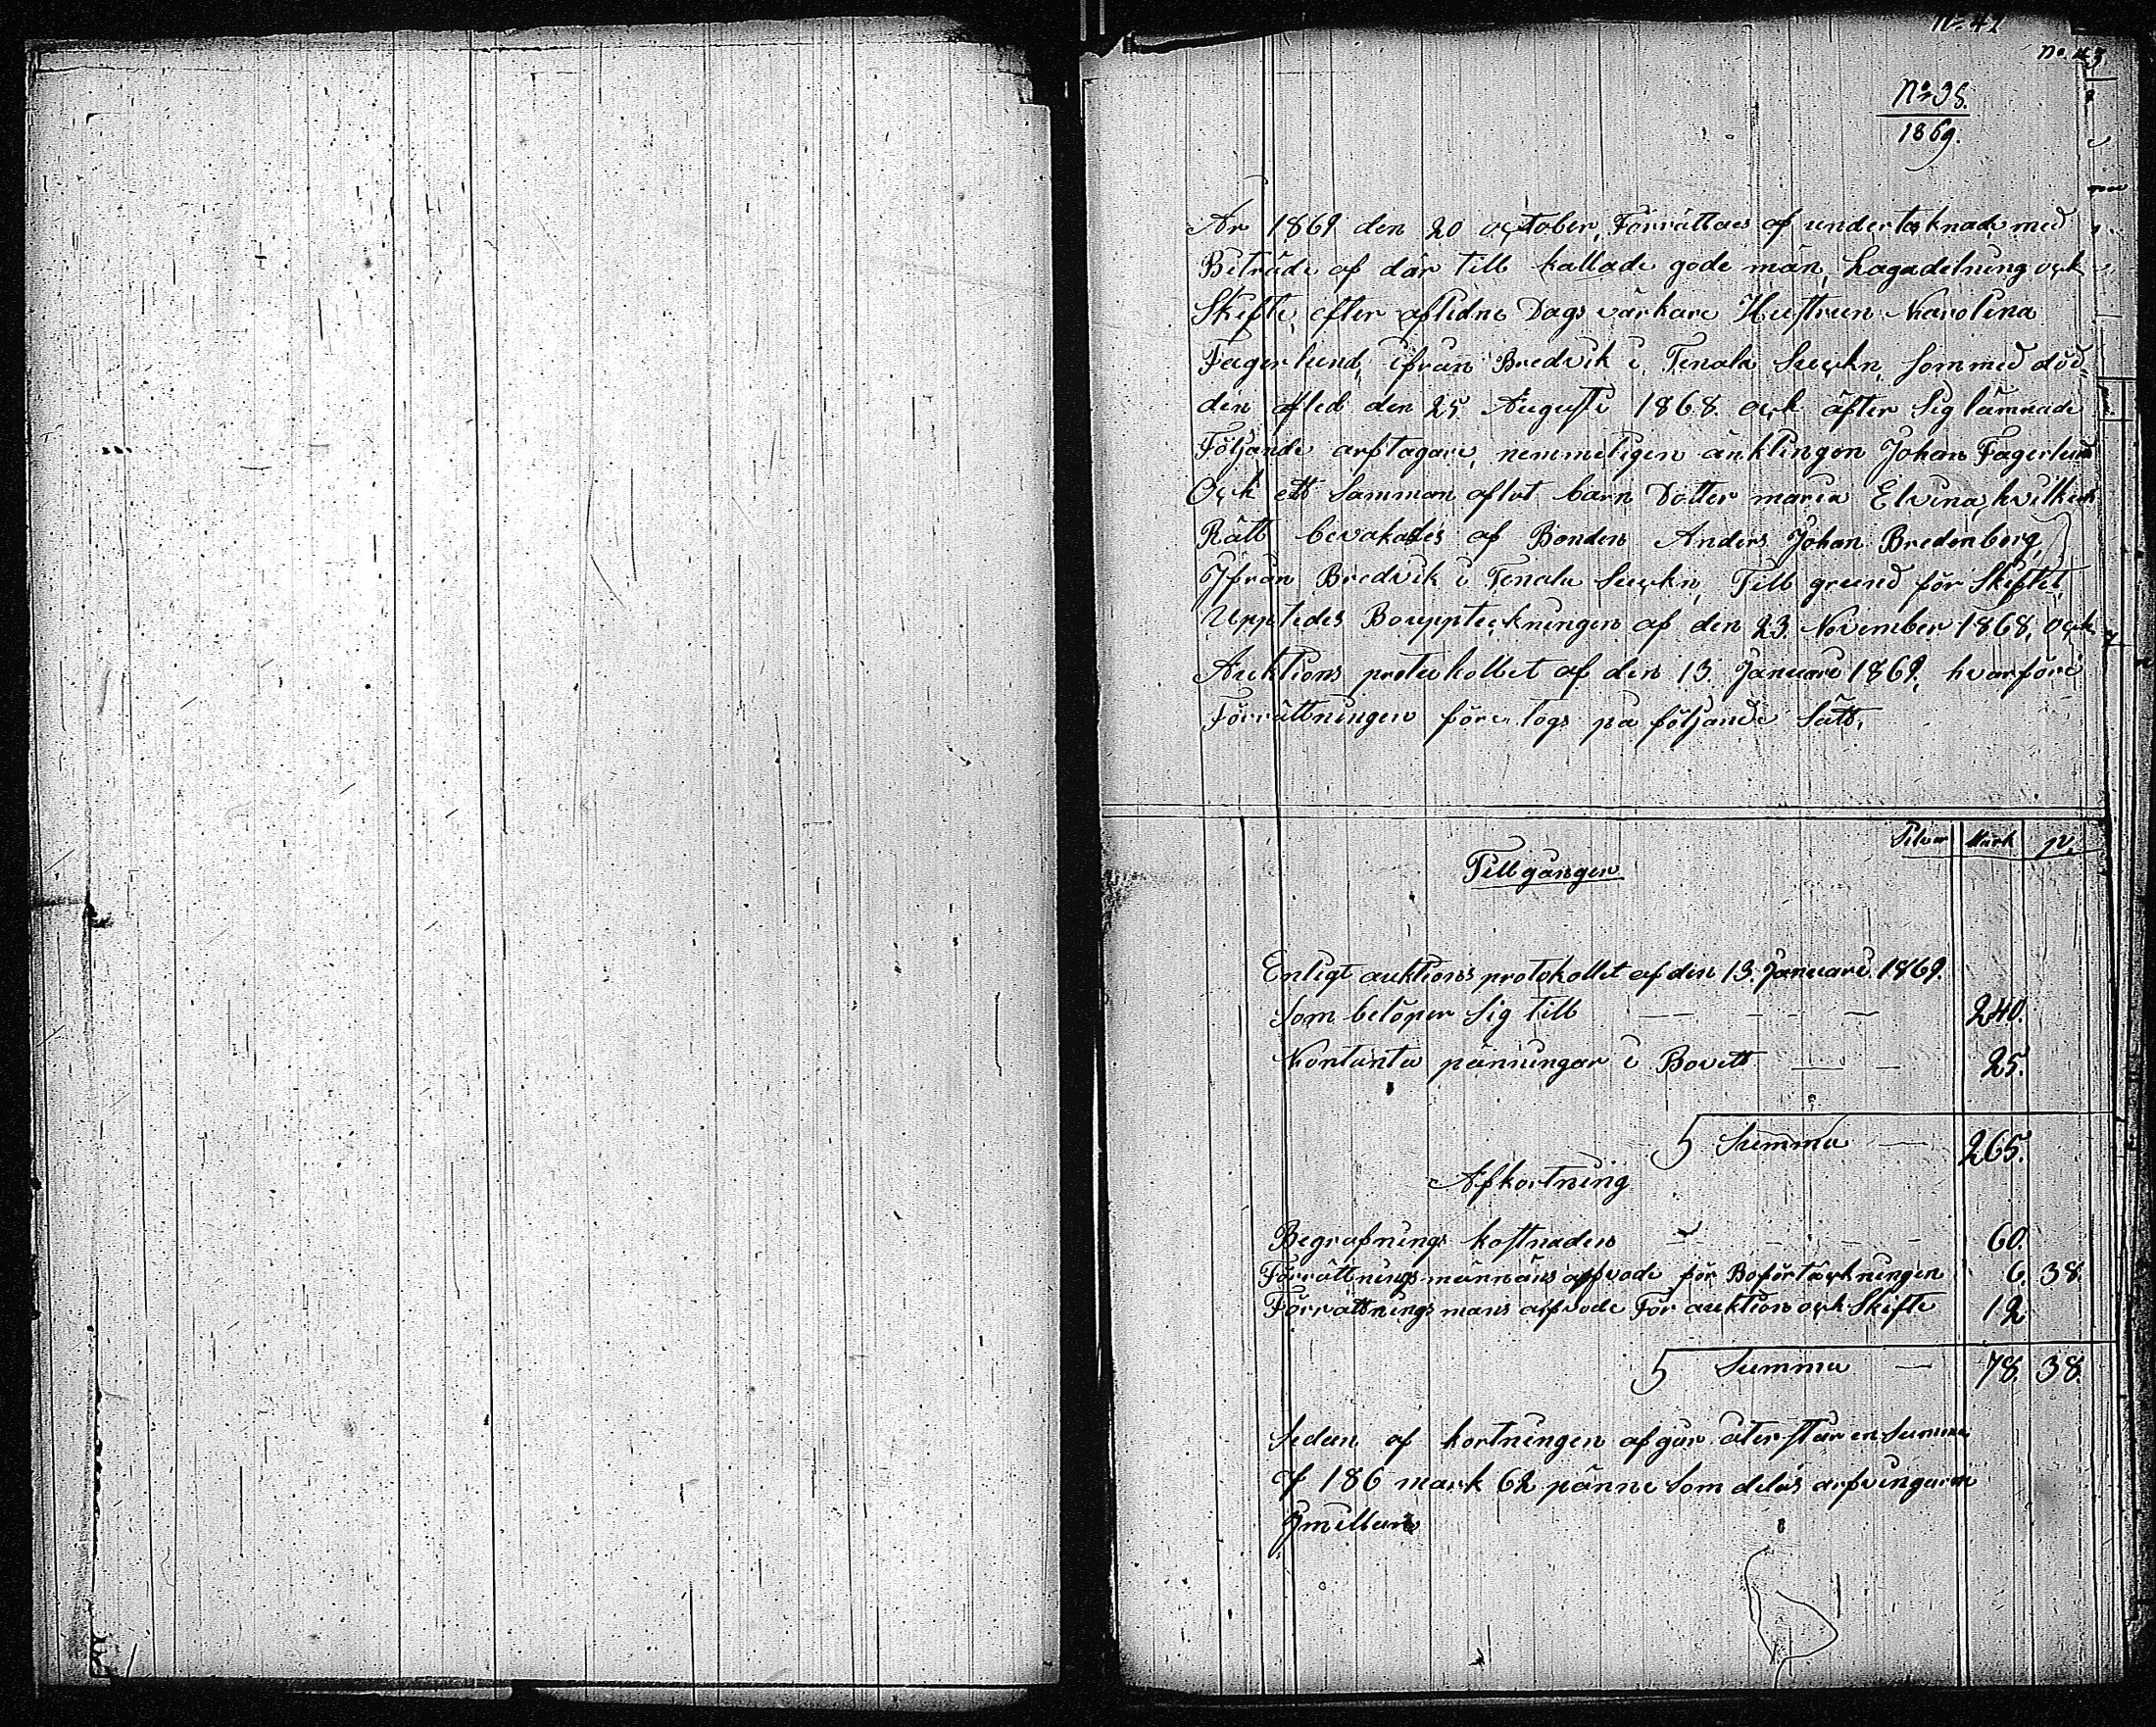 No 41
No. 43
No 38.
1869.
År 1869 den 20 october, Förrättaes af undertæknade med
Beträde af där till kallade gode män, Lagadelning ock
Skifte, efter aflidne Dags värkare Hustrun Karolina
Fagerlund, ifrån Bredvik i Tenala Sockn, som med död-
den afled den 25 Augusti 1868 ock äfter sig lämnade
Följande arftagare, nemmeligen änklingen Johan Fagerlund
Ock ett Samman aflat barn Dotter maria Elvina, hvilkens
Rätt bevakades af Bonden Anders Johan Bredenberg,
Ifrån Bredvik i Tenala Sockn, Till grund för Skiftet,
Uppledes Bouppteckningen af den 23 November 1868, ock
Auktions protukollet af den 13. Januari 1869, hvarföre
Förrättningen före togs på följande Sätt,
Silver Mark p.
Tillgången
Enligt auktions protokollet af den 13. Januari 1869.
Som belöper sig till 240.
Kontanta pänningar i Bovett 25.
Summa 265.
Afkortning
Begrafnings kostnaden 60.
Förrättnings männäns arfvode för Boförtäckningen 6. 38.
Förrättnings mans arfvode För auktion ock Skifte 12
Summa 78. 38.
Sedan af kortningen afgår åter står en Summa
af 186 mark 62 pänni Som delas arfvingarna
Imellan